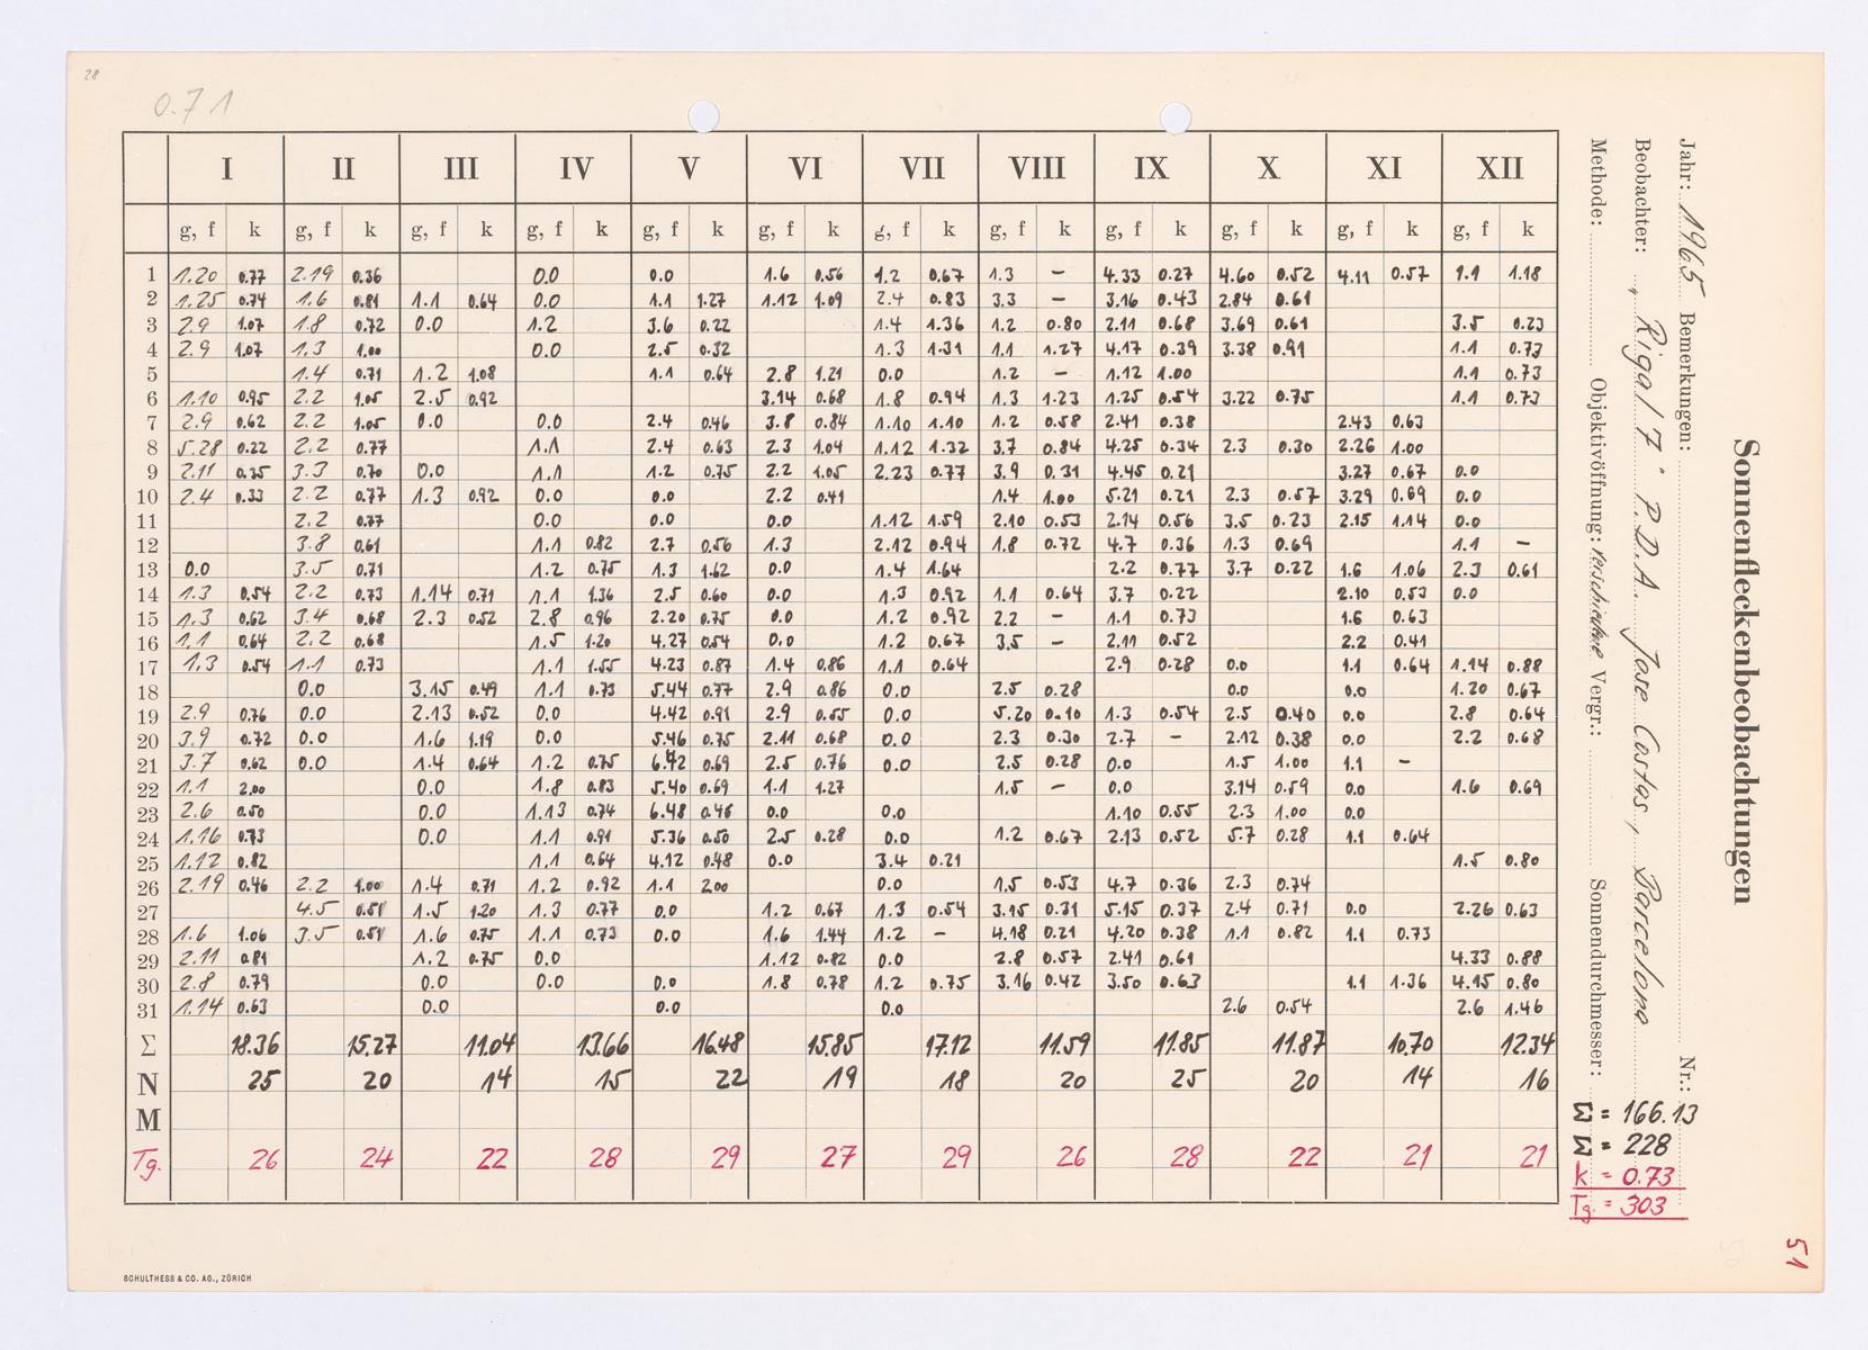 28
0.71
I II III IV V VI VII VIII IX X XI XII
g, f k g, f k g, f k g, f k g, f k g, f k g, f k g, f k g, f k g, f k g, f k g, f k
1 1.20 0.77 2.19 0.36 0.0 0.0 1.6 0.56 1.2 0.67 1.3 – 4.33 0.27 4.60 0.52 4.11 0.57 1.1 1.18
2 1.25 0.74 1.6 0.81 1.1 0.64 0.0 1.1 1.27 1.12 1.09 2.4 0.83 3.3 – 3.16 0.43 2.84 0.61
3 2.9 1.07 1.8 0.72 0.0 1.2 3.6 0.22 1.4 1.36 1.2 0.80 2.11 0.68 3.69 0.61 3.5 0.23
4 2.9 1.07 1.3 1.00 0.0 2.5 0.32 1.3 1.31 1.1 1.27 4.17 0.39 3.38 0.91 1.1 0.73
5 1.4 0.71 1.2 1.08 1.1 0.64 2.8 1.21 0.0 1.2 – 1.12 1.00 1.1 0.73
6 1.10 0.95 2.2 1.05 2.5 0.92 3.14 0.68 1.8 0.94 1.3 1.23 1.25 0.54 3.22 0.75 1.1 0.73
7 2.9 0.62 2.2 1.05 0.0 0.0 2.4 0.46 3.8 0.84 1.10 1.10 1.2 0.58 2.41 0.38 2.43 0.63
8 5.28 0.22 2.2 0.77 1.1 2.4 0.63 2.3 1.04 1.12 1.32 3.7 0.84 4.25 0.34 2.3 0.30 2.26 1.00
9 2.11 0.35 3.3 0.70 0.0 1.1 1.2 0.75 2.2 1.05 2.23 0.77 3.9 0.31 4.45 0.21 3.27 0.67 0.0
10 2.4 0.33 2.2 0.77 1.3 0.92 0.0 0.0 2.2 0.41 1.4 1.00 5.21 0.21 2.3 0.57 3.29 0.69 0.0
11 2.2 0.77 0.0 0.0 0.0 1.12 1.59 2.10 0.53 2.14 0.56 3.5 0.23 2.15 1.14 0.0
12 3.8 0.61 1.1 0.82 2.7 0.56 1.3 2.12 0.94 1.8 0.72 4.7 0.36 1.3 0.69 1.1 –
13 0.0 3.5 0.71 1.2 0.75 1.3 1.62 0.0 1.4 1.64 2.2 0.77 3.7 0.22 1.6 1.06 2.3 0.61
14 1.3 0.54 2.2 0.73 1.14 0.71 1.1 1.36 2.5 0.60 0.0 1.3 0.92 1.1 0.64 3.7 0.22 2.10 0.53 0.0
15 1.3 0.62 3.4 0.68 2.3 0.52 2.8 0.96 2.20 0.75 0.0 1.2 0.92 2.2 – 1.1 0.73 1.6 0.63
16 1.1 0.64 2.2 0.68 1.5 1.20 4.27 0.54 0.0 1.2 0.67 3.5 – 2.11 0.52 2.2 0.41
17 1.3 0.54 1.1 0.73 1.1 1.55 4.23 0.87 1.4 0.86 1.1 0.64 2.9 0.28 0.0 1.1 0.64 1.14 0.88
18 0.0 3.15 0.49 1.1 0.73 5.44 0.77 2.9 0.86 0.0 2.5 0.28 0.0 0.0 1.20 0.67
19 2.9 0.76 0.0 2.13 0.52 0.0 4.42 0.91 2.9 0.55 0.0 5.20 0.10 1.3 0.54 2.5 0.40 0.0 2.8 0.64
20 3.9 0.72 0.0 1.6 1.19 0.0 5.46 0.75 2.11 0.68 0.0 2.3 0.30 2.7 – 2.12 0.38 0.0 2.2 0.68
21 3.7 0.62 0.0 1.4 0.64 1.2 0.75 6.42 0.69 2.5 0.76 0.0 2.5 0.28 0.0 1.5 1.00 1.1 –
22 1.1 2.00 0.0 1.8 0.83 5.40 0.69 1.1 1.27 1.5 – 0.0 3.14 0.59 0.0 1.6 0.69
23 2.6 0.50 0.0 1.13 0.74 6.48 0.46 0.0 0.0 1.10 0.55 2.3 1.00 0.0
24 1.16 0.73 0.0 1.1 0.91 5.36 0.50 2.5 0.28 0.0 1.2 0.67 2.13 0.52 5.7 0.28 1.1 0.64
25 1.12 0.82 1.1 0.64 4.12 0.48 0.0 3.4 0.21 1.5 0.80
26 2.19 0.46 2.2 1.00 1.4 0.71 1.2 0.92 1.1 2.00 0.0 1.5 0.53 4.7 0.36 2.3 0.74
27 4.5 0.51 1.5 1.20 1.3 0.77 0.0 1.2 0.67 1.3 0.54 3.15 0.31 5.15 0.37 2.4 0.71 0.0 2.26 0.63
28 1.6 1.06 3.5 0.51 1.6 0.75 1.1 0.73 0.0 1.6 1.44 1.2 – 4.18 0.21 4.20 0.38 1.1 0.82 1.1 0.73
29 2.11 0.81 1.2 0.75 0.0 1.12 0.82 0.0 2.8 0.57 2.41 0.61 4.33 0.88
30 2.8 0.79 0.0 0.0 0.0 1.8 0.78 1.2 0.75 3.16 0.42 3.50 0.63 1.1 1.36 4.15 0.80
31 1.14 0.63 0.0 0.0 0.0 2.6 0.54 2.6 1.46
Σ 18.36 15.27 11.04 13.66 16.48 15.85 17.12 11.59 11.85 11.87 10.70 12.34
N 25 20 14 15 22 19 18 20 25 20 14 16
M
Tg. 26 24 22 28 29 27 29 26 28 22 21 21
Sonnenfleckenbeobachtungen
Jahr: 1965 Bemerkungen: Nr.:
Beobachter: " Rigal 7" P.D.A. Jose Costas, Barcelona
Methode: Objektivöffnung: verschiedene Vergr.: Sonnendurchmesser:
Σ = 166.13
Σ = 228
k = 0.73
Tg. = 303
51
SCHULTHESS & CO. AG., ZÜRICH